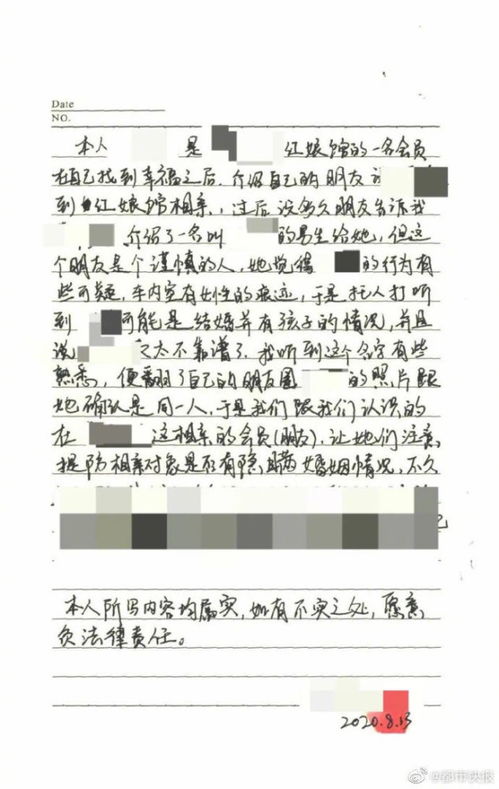 Date
NO.
本人 是 红娘馆的一名会员
在自己找到幸福之后,介绍自己的朋友
到 红娘馆相亲,过后没多久朋友告诉我
介绍了一名叫 的男生给她,但这
个朋友是个谨慎的人,她觉得 的行为有
些可疑,车内定有女性的痕迹,于是托人打听
到 可能是结婚并有孩子的情况,并且
说 太不靠谱了,我听到这个名字有些
熟悉,便翻了自己的朋友圈 的照片跟
她确认是同一人,于是我们跟我们认识的
在 这相亲的会员(朋友),让她们注意
提防相亲对象是否有隐瞒婚姻情况,不久
本人所写内容均属实,如有不实之处,愿意
负法律责任。
2020.8.13
@都市快报